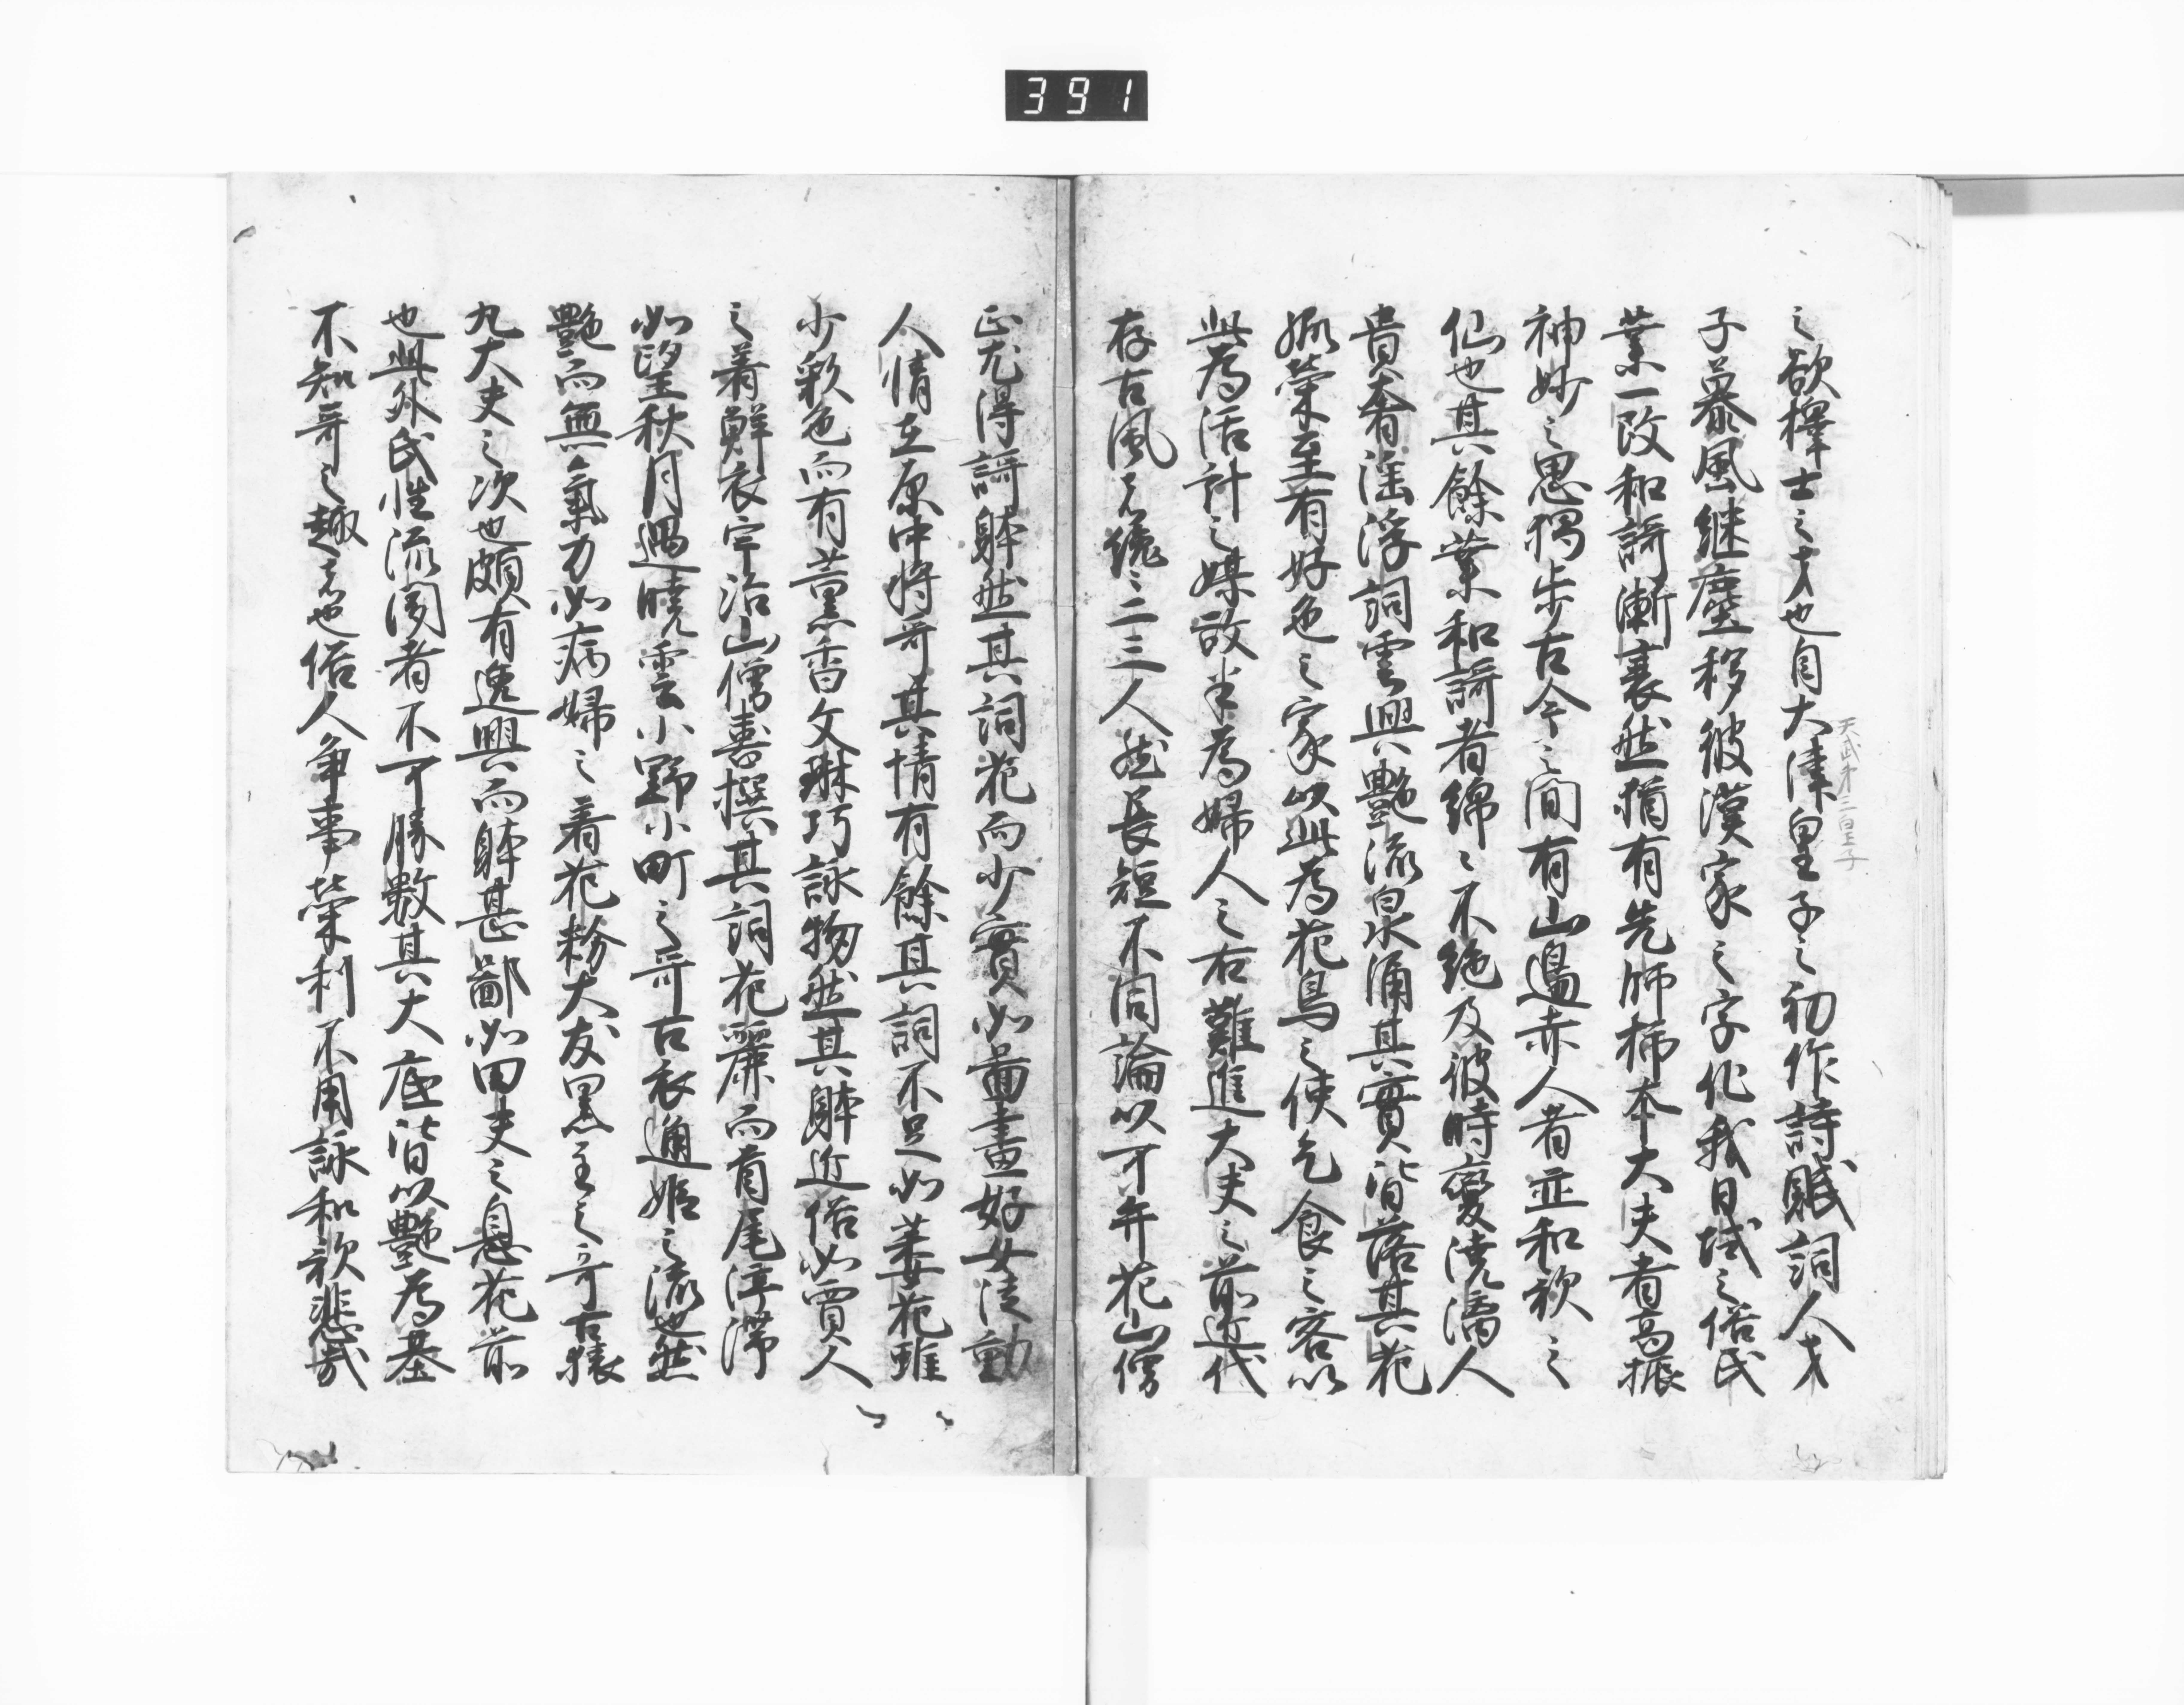 391
之欲擇士之才也自大津皇子之初作詩賦詞人才
天武第三皇子
子慕風継塵移彼漢家之字化我日域之俗民
業一改和謌漸衰然猶有先師柿本大夫者高振
神妙之思獨歩古今之間有山邊赤人者並和歌之
仙也其餘業和謌者綿〻不絶及彼時變澆漓人
貴奢淫浮詞雲興艶流泉涌其實皆落其花
孤榮至有好色之家以此為花鳥之使乞食之客以
此為活計之媒故半為婦人之右難進大夫之前近代
存古風者纔二三人然長短不同論以可弁花山僧
正尤得謌躰然其詞花而少實如圖畫好女徒動
人情在原中将哥其情有餘其詞不足如萎花雖
少彩色而有薫香文琳巧詠物然其躰近俗如賈人
之着鮮衣宇治山僧喜撰其詞花麗而首尾渟滞
如望秋月遇暁雲小野小町之哥古衣通姫之流也然
艶而無氣力如病婦之着花粉大友黒主之哥古猿
丸大夫之次也頗有逸興而躰甚鄙如田夫之息花前
也此外氏姓流聞者不可勝數其大底皆以艶為基
不知哥之趣者也俗人争事榮利不用詠和歌悲哉